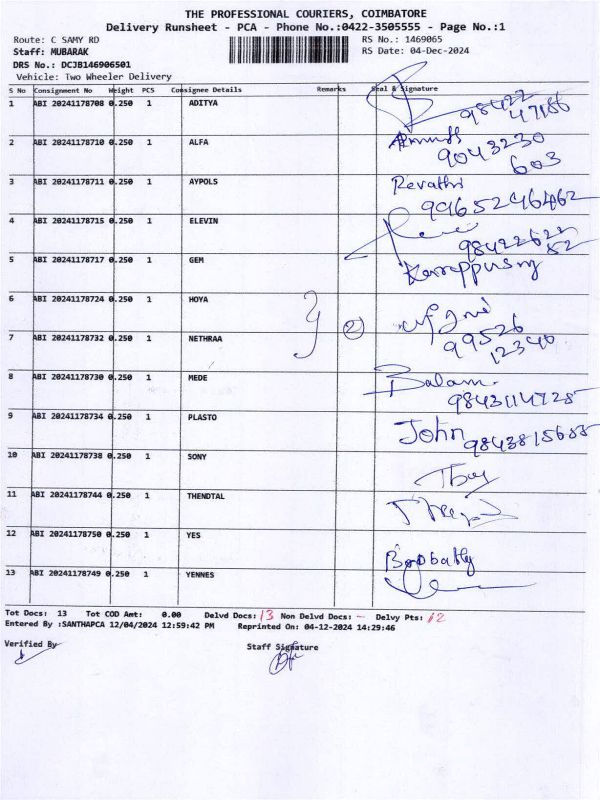 THE PROFESSIONAL COURIERS, COIMBATORE
Delivery Runsheet - PCA - Phone No.:0422-3505555 - Page No.:1
Route: C SAMY RD
RS No.: 1469065
Staff: MUBARAK
RS Date: 04-Dec-2024
DRS No.: DCJB146906501
Vehicle: Two Wheeler Delivery
S No Consignment No Weight PCS Consignee Details Remarks Seal & Signature
1 ABI 20241178708 0.250 1 ADITYA 98422 47186
2 ABI 20241178710 0.250 1 ALFA 9043230 603
3 ABI 20241178711 0.250 1 AYPOLS Revathi 9965246462
4 ABI 20241178715 0.250 1 ELEVIN 98422622 82
5 ABI 20241178717 0.250 1 GEM
6 ABI 20241178724 0.250 1 HOYA 2
7 ABI 20241178732 0.250 1 NETHRAA 99526 12340
8 ABI 20241178730 0.250 1 MEDE Balam
9 ABI 20241178734 0.250 1 PLASTO John
10 ABI 20241178738 0.250 1 SONY
11 ABI 20241178744 0.250 1 THENDTAL
12 ABI 20241178750 0.250 1 YES
13 ABI 20241178749 0.250 1 YENNES
Tot Docs: 13 Tot COD Amt: 0.00 Delvd Docs: 13 Non Delvd Docs: - Delvy Pts: 12
Entered By :SANTHAPCA 12/04/2024 12:59:42 PM Reprinted On: 04-12-2024 14:29:46
Verified By
Staff Signature